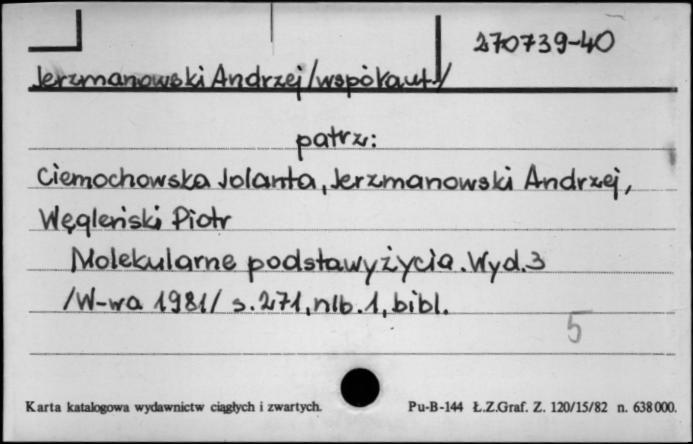 270739-40
Jerzmanowski Andrzej /współaut./
patrz:
Ciemochowska Jolanta, Jerzmanowski Andrzej,
Węgleński Piotr
Molekularne podstawy życia. Wyd.3
/W-wa 1981/ s.271, nlb.1, bibl.
5
Karta katalogowa wydawnictw ciągłych i zwartych. Pu-B-144 Ł.Z.Graf. Z. 120/15/82 n. 638000.